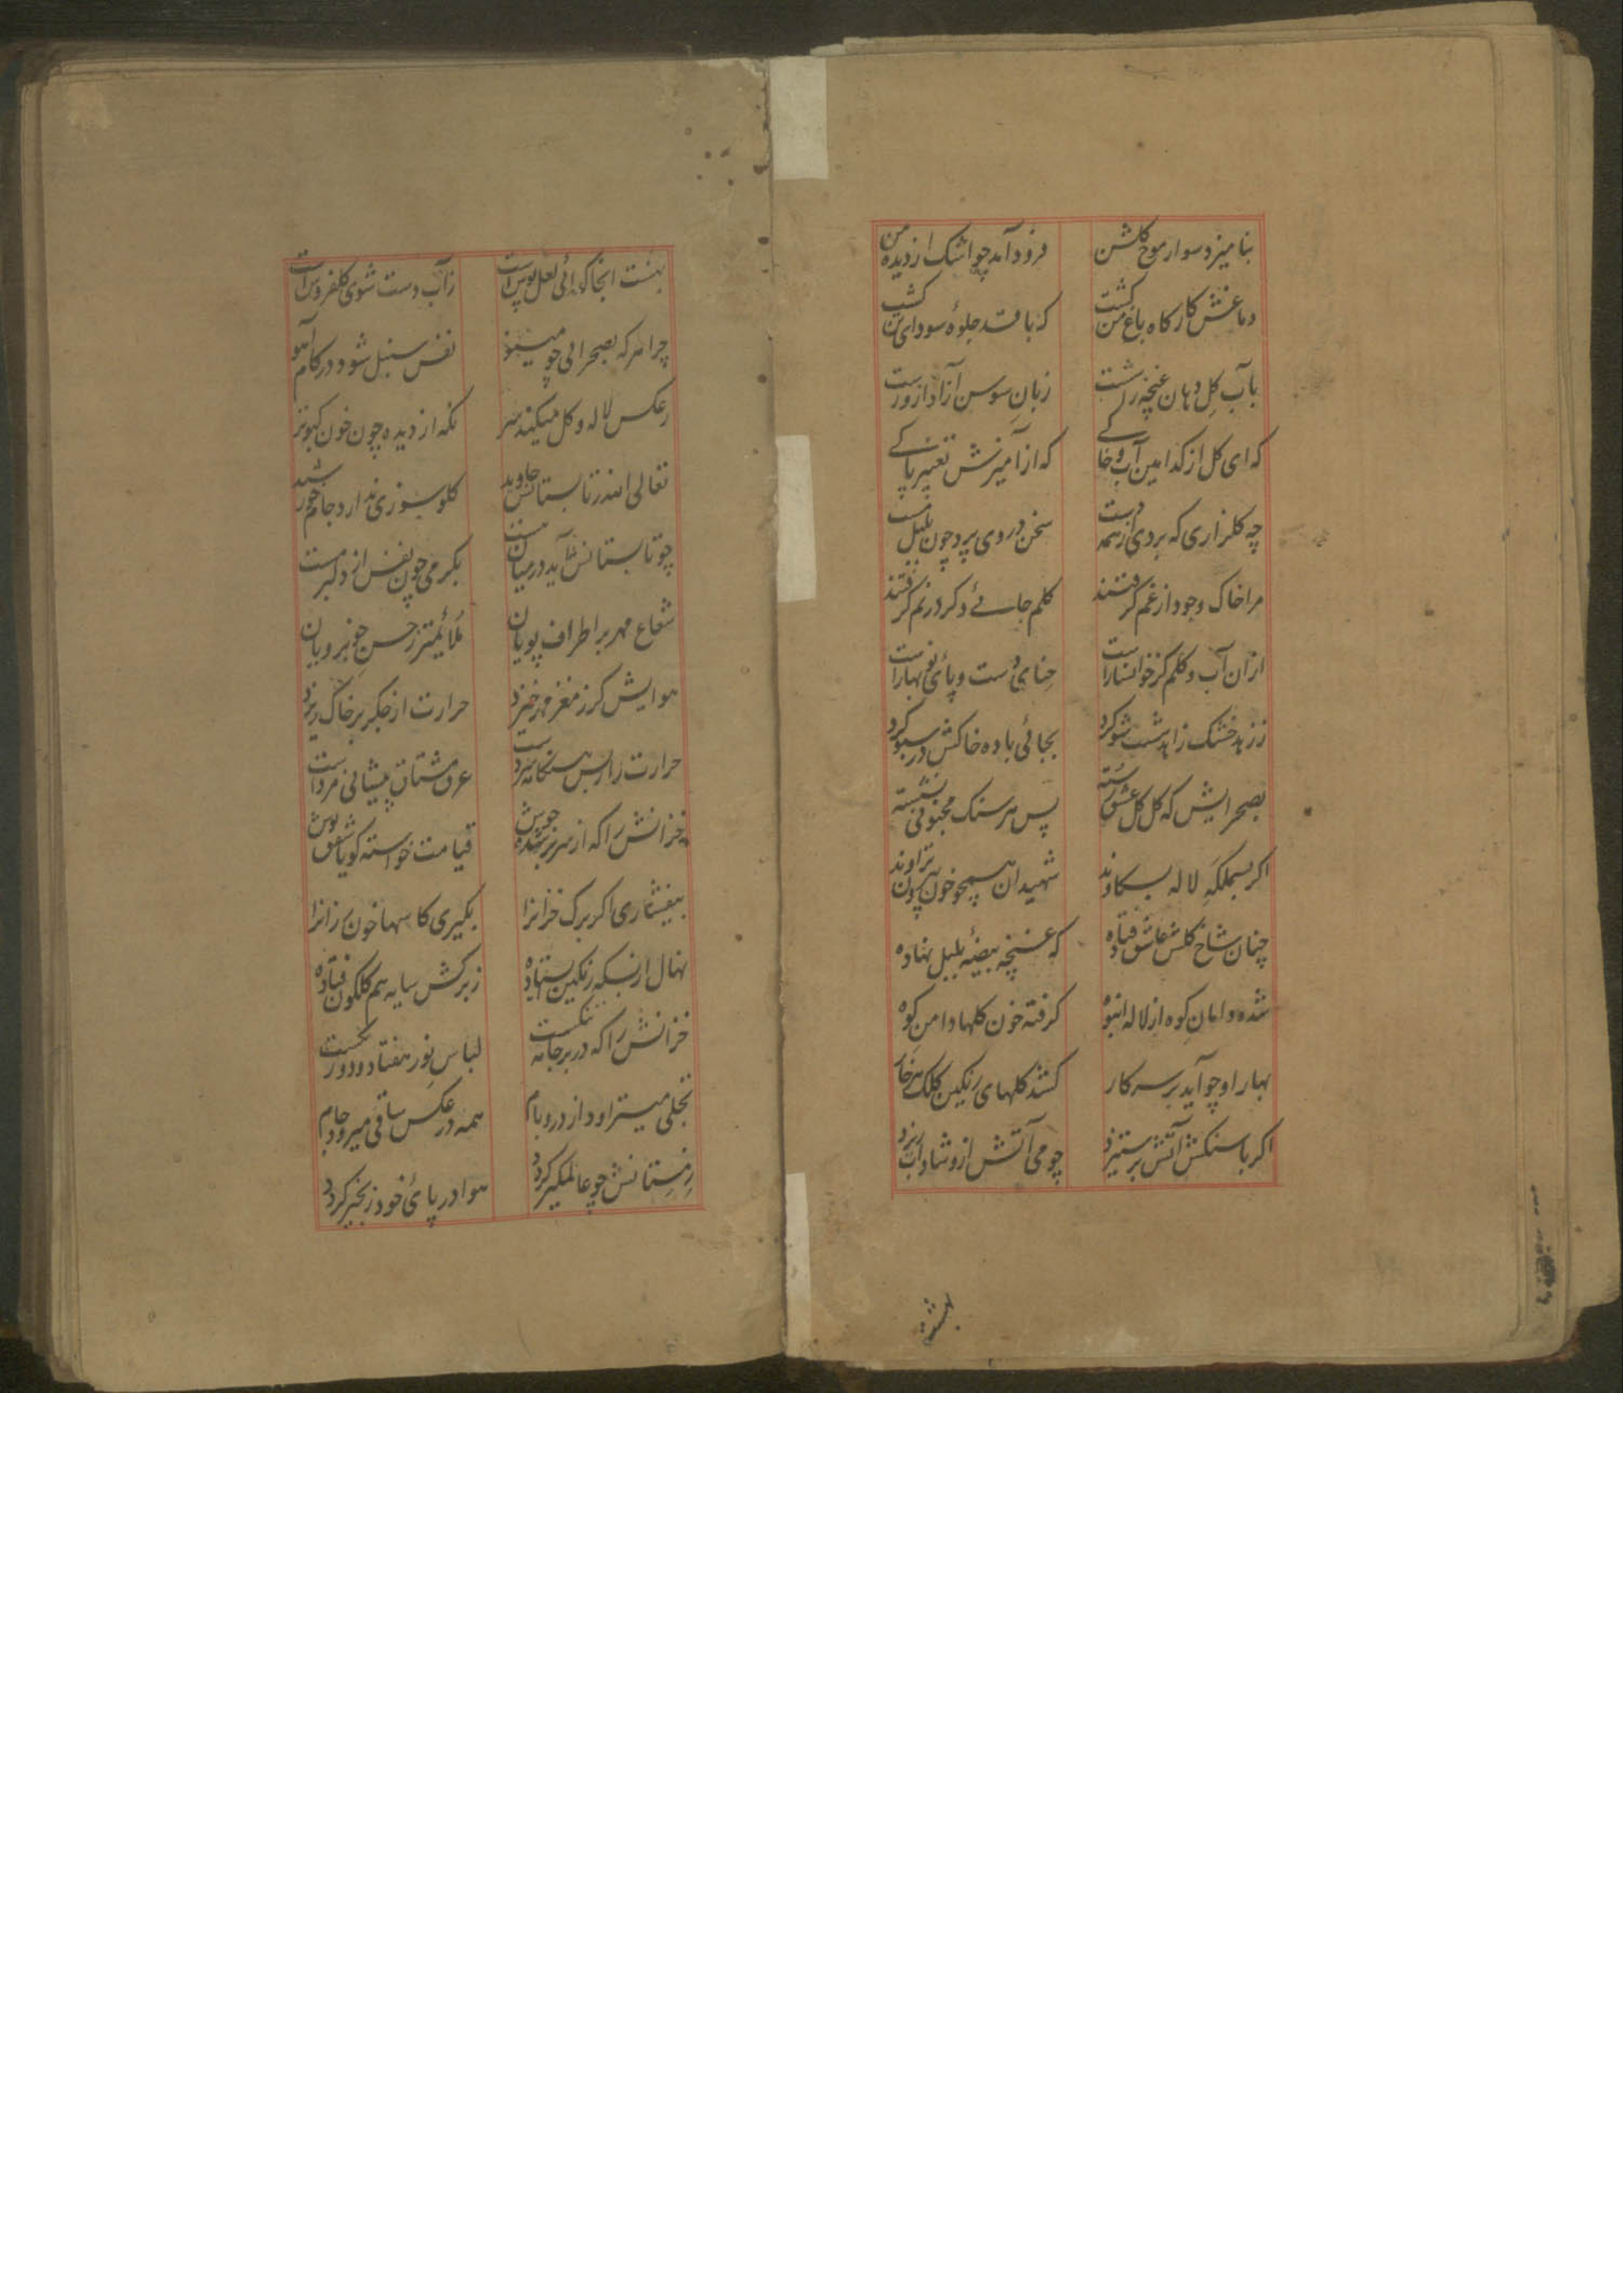 بنامیزد سوار موج گلشن فرود آمد چو اشک از دیده من
دماغش کارکاه باغ من کشت که بافد جلوهٔ سودای من
بآب کل دهان غنچه زر شست زبان سوسن آزاد ازو رست
که ای کل از کدامین آب و خاکی که از آمیزش تعبیر پاکی
چه کلزاری که بردی از همه دست سخن در وی پرد چون بلبل مست
مرا خاک وجود از غم کرفتند کلم جائے دکر در نم کرفتند
ازان آب و کلم کز خوانسار است حنای دست و پائ نوبهار است
ز زهد خشک زاهد شست شو کرد بجائی باده خاکش در سبو کرد
بصحرایش که کل کل عشق رسته پس هر سنک مجنونی نشسته
اکر بسملکه لاله بکاوند شهیدان همچو خون بیرون تراوند
چنان شاخ کلش عاشق فتاده که غنچه بیضهٔ بلبل نهاده
شده دامان کوه از لاله انبوه کرفته خون کلها دامن کوه
بهار او چو آید بر سر کار کشد کلهای رنکین کلک هر خار
اکر با سنکش آتش بر ستیزد چو می آتش ازو شاداب ریزد
بهشت
بهشت انجا کدائی لعل پوش است ز آب دست شوی کلفروش است
چرا هر که بصحرائی چو مینو نفس سنبل شود در کام آهو
ز عکس لاله و کل میکند سر نکه از دیده چون خون کبوتر
تعالی الله ز تابستان جاوید کلوسوزی ندارد جام خورشید
چو تابستانش آید در میان مست بکرمی چون نفس از دلبر مست
شعاع مهر بر اطراف پویان ملائمتر ز حسن خوبرویان
هوایش کرز مغز مهر خیزد حرارت از جکر بر خاک ریزد
حرارت را ز بس هنکامه سرد است عرق مشتاق پیشانی مرد است
خزانش را که از سر بر شده جوش قیامت خواسته کویا شفق پوش
بیفشاری اکر برک خزانرا بکیری کاسها خون رزانرا
نهال از بسکه رنکین ایستاده ز برکش سایه هم کلکون فتاده
خزانش را که در بر جامه تنکست لباس نور هفتاد و دو رنکست
تجلی میتراود از در و بام همه در عکس ساقی میرود جام
زمستانش چو عالمکیر کردد هوا در پائ خود زنجیر کردد